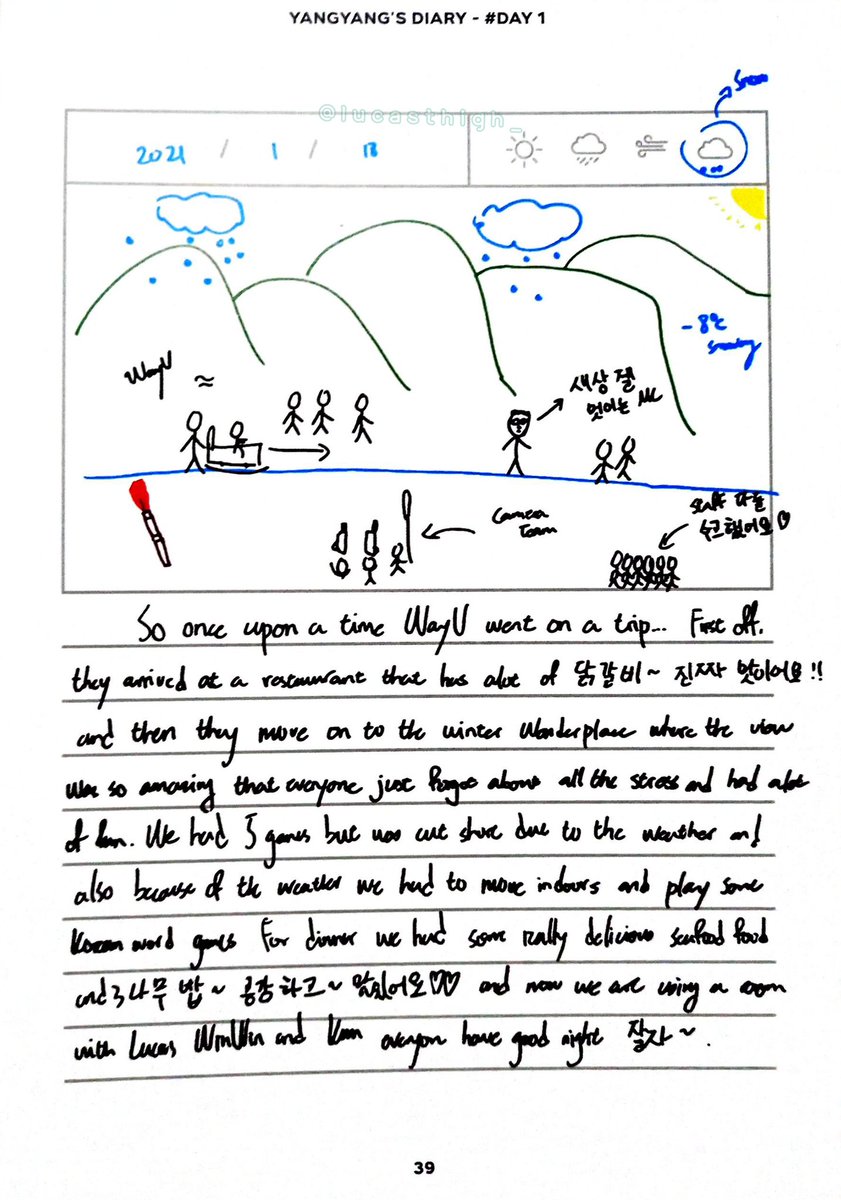 YANGYANG'S DIARY - #DAY 1
Snow
@lucasthigh_
2021 / 1 / 18
-8°C
snowing
WayV ≈
새상 젤
멋이는 MC
Camera
Team
staff 다들
수고했어요♡
So once upon a time WayV went on a trip... First off.
they arrived at a restaurant that has alot of 닭갈비~ 진짜 맛이어요!!
and then they move on to the winter wonderplace where the view
was so amazing that everyone just forgot about all the stress and had alot
of fun. We had 5 games but was cut short due to the weather and
also because of the weather we had to move indoors and play some
Korean word games For dinner we had some really delicious seafood food
and 나무 밥~ 하고~ ♡♡ and now we are using a room
with Lucas WinWin and Kun everyone have good night 잘자~.
39